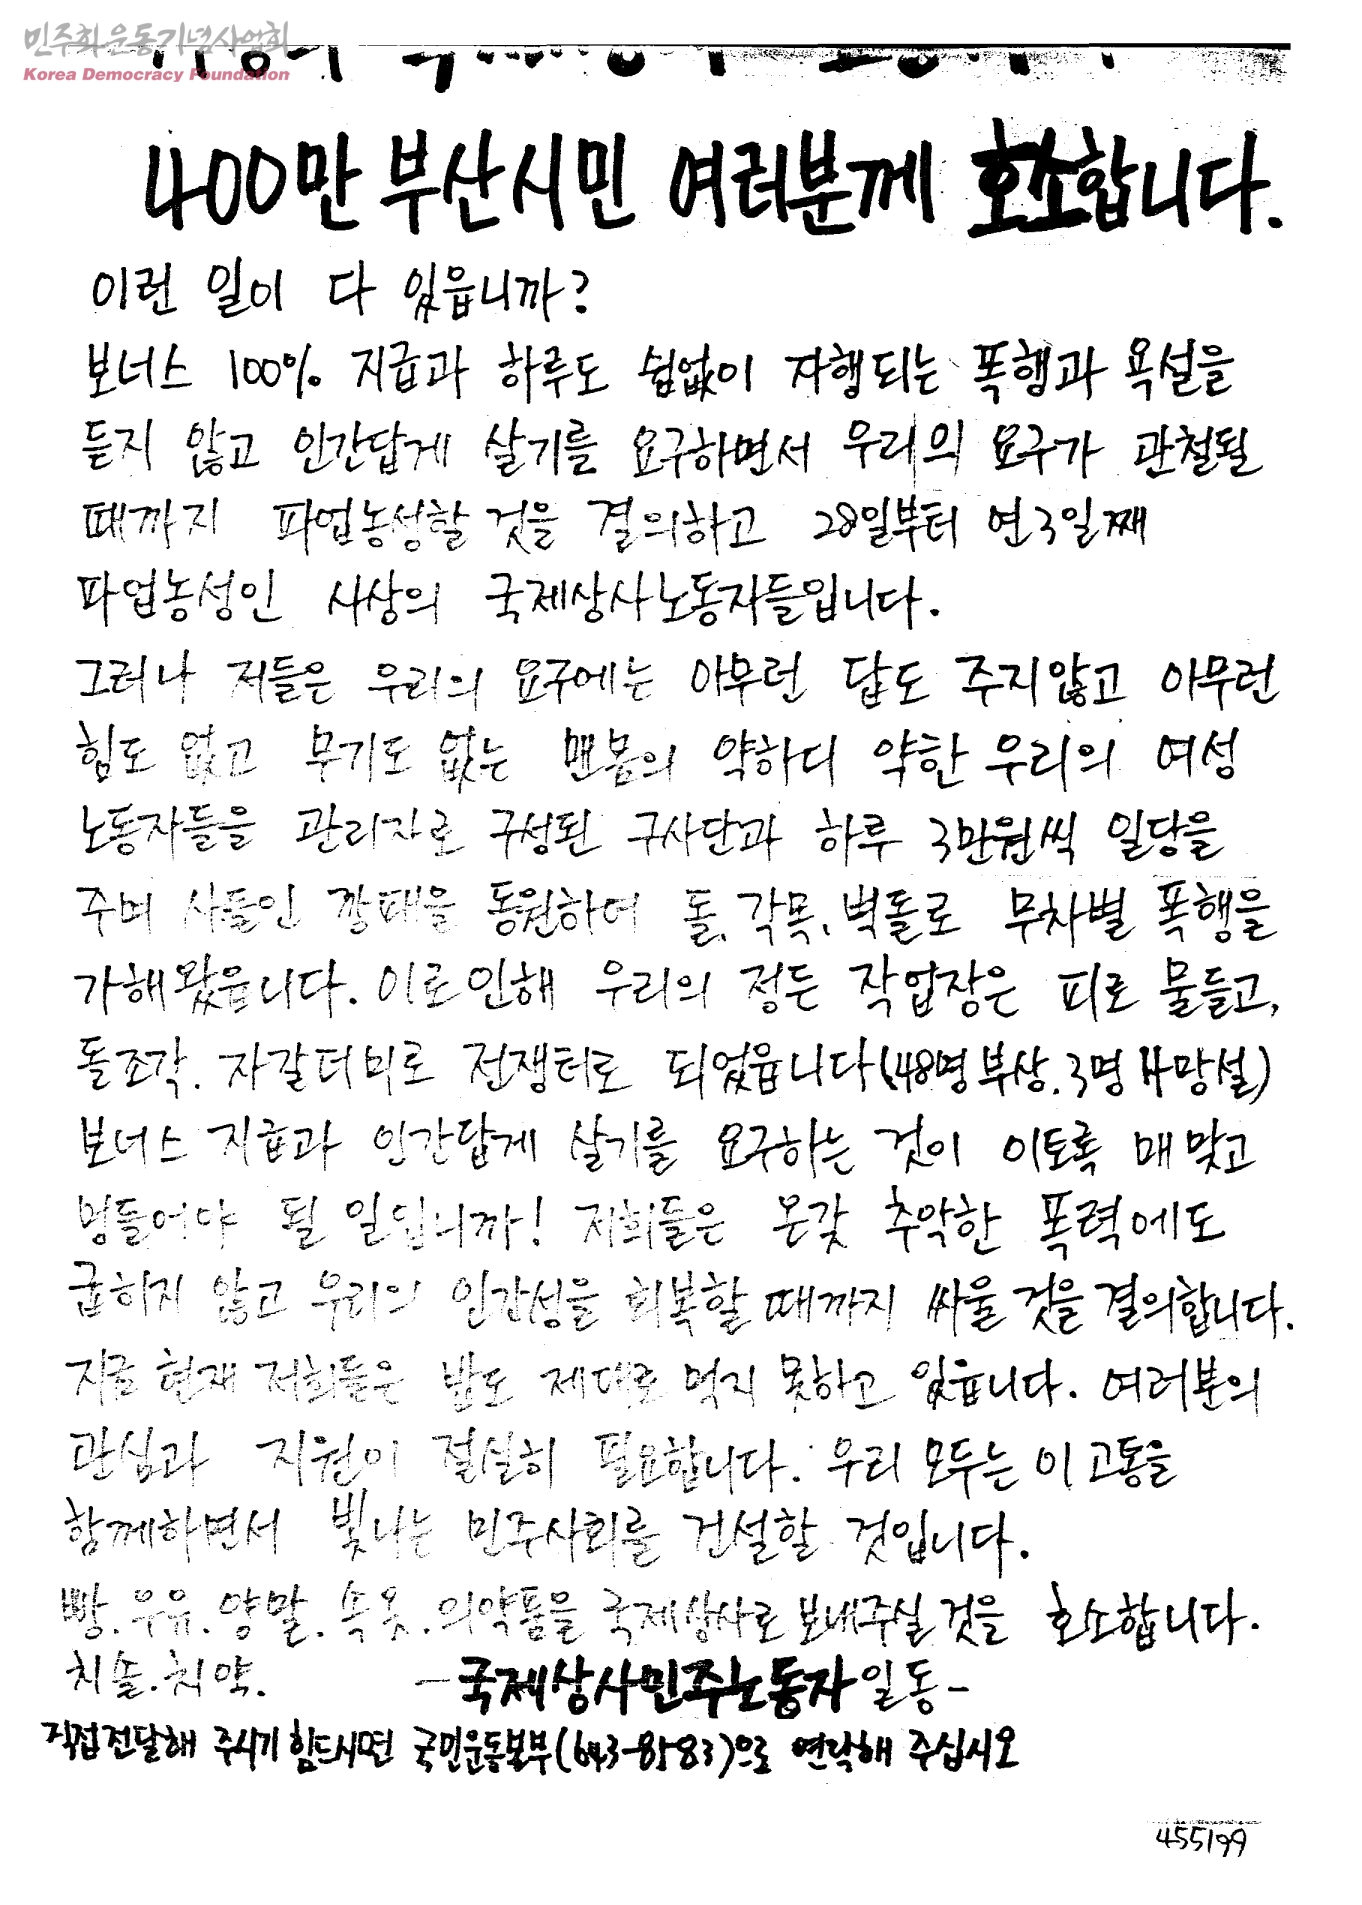 민주화운동기념사업회
Korea Democracy Foundation
400만 부산시민 여러분께 호소합니다.
이런 일이 다 있읍니까?
보너스 100% 지급과 하루도 쉽없이 자행되는 폭행과 욕설을
듣지 않고 인간답게 살기를 요구하면서 우리의 요구가 관철될
때까지 파업농성할 것을 결의하고 28일부터 연3일째
파업농성인 사상의 국제상사노동자들입니다.
그러나 저들은 우리의 요구에는 아무런 답도 주지않고 아무런
힘도 없고 무기도 없는 맨몸의 약하디 약한 우리의 여성
노동자들을 관리자로 구성된 구사단과 하루 3만원씩 일당을
주며 사들인 깡패을 동원하여 돌, 각목, 벽돌로 무차별 폭행을
가해왔읍니다. 이로인해 우리의 정든 작업장은 피로 물들고,
돌조각. 자갈더미로 전쟁터로 되었읍니다(148명 부상. 3명 사망설)
보너스 지급과 인간답게 살기를 요구하는 것이 이토록 매맞고
멍들어야 될 일입니까! 저희들은 온갖 추악한 폭력에도
굽히지 않고 우리의 인간성을 회복할 때까지 싸울 것을 결의합니다.
지금 현재 저희들은 밥도 제대로 먹지 못하고 있읍니다. 여러분의
관심과 지원이 절실히 필요합니다. 우리 모두는 이 고통을
함께하면서 빛나는 민주사회를 건설할 것입니다.
빵. 우유. 양말. 속옷. 의약품을 국제상사로 보내주실 것을 호소합니다.
치솔. 치약.
- 국제상사민주노동자 일동 -
직접전달해 주시기 힘드시면 국민운동본부(643-8583)으로 연락해 주십시오
455199